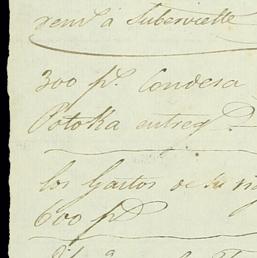 rem.ᵈ á Subervielle
300 p.ˢ Condesa
Potoka entreg.ˢ
los Gastos de su
600 p.ˢ